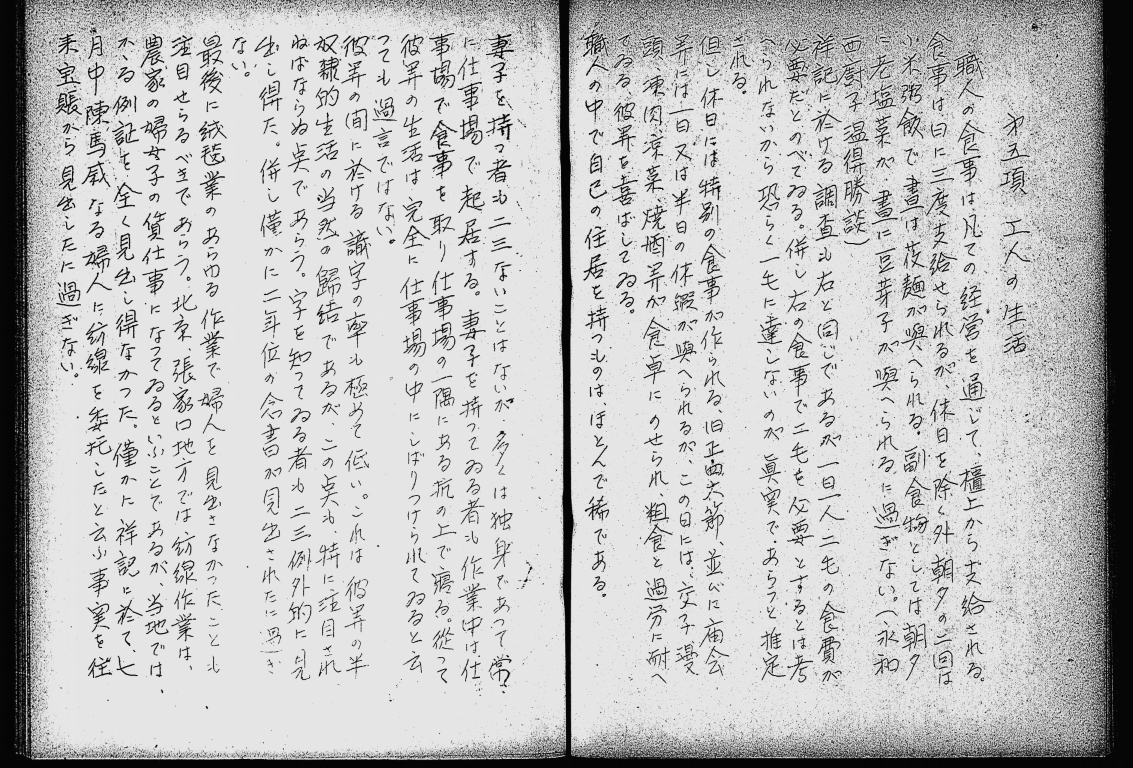 第五項　工人の生活
職人の食事は凡ての経営を通じて、櫃上から支給される。
食事は日に三度支給せられるが、休日を除く外朝夕の二回は
小米粥飯で晝は莜麺が與へられる。副食物としては朝夕
に老塩菜が、晝に豆芽子が與へられるに過ぎない。（永和
西厨子温得勝談）
祥記に於ける調査も右と同じであるが一日一人二毛の食費が
必要だとのべてゐる。併し右の食事で二毛を必要とするとは考
へられないから恐らく一毛に達しないのが眞実であらうと推定
される。
但し休日には特別の食事が作られる、旧正四大節、並びに庙会
等には一日又は半日の休暇が與へられるが、この日には、交子饅
頭、凍肉涼菜、焼酒等が食卓にのせられ、粗食と過労に耐へ
てゐる、彼等を喜ばしてゐる。
職人の中で自己の住居を持つものは、ほとんで稀である。
妻子を持つ者も二三ないことはないが、多くは独身であつて常
に仕事場で起居する。妻子を持つてゐる者も作業中は仕
事場で食事を取り仕事場の一隅にある炕の上で寝る。從つて
彼等の生活は完全に仕事場の中にしばりつけられてゐると云
つても過言ではない。
彼等の間に於ける識字の率も極めて低い。これは彼等の半
奴隷的生活の当然の歸結であるが、この点も、特に注目され
ねばならぬ点であらう。字を知つてゐる者も二三例外的に見
出し得た。併し僅かに二年位の念書が見出されたに過ぎ
ない。
最後に絨毯業のあらゆる作業で婦人を見出さなかつたことも
注目せらるべきであらう。北京、張家口地方では紡線作業は、
農家の婦女子の賃仕事になつてゐるといふことであるが、当地では、
かゝる例証を全く見出し得なかつた。僅かに祥記に於て、七
月中陳馬威なる婦人に紡線を委託したと云ふ事実を往
来宝賬から見出したに過ぎない。